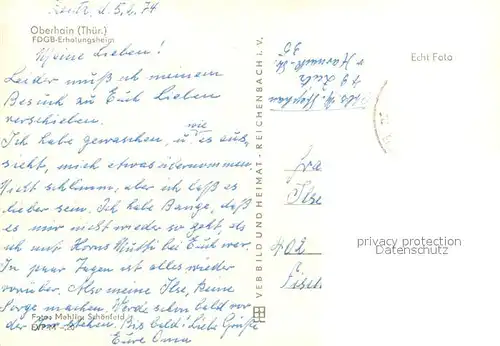 Zeitz, d. 5.2.74
Oberhain (Thür.)
FDGB-Erholungsheim
Meine Lieben!
Leider muß ich meinen
Besuch zu Euch Lieben
verschieben.
Ich habe gewaschen, u. wie es aus-
sieht, mich etwas übernommen.
Nicht schlimm, aber ich laß es
lieber sein. Ich habe Bange, daß
es mir nicht wieder so geht, als
ich mit Horns Mutti bei Euch war.
In paar Tagen ist alles wieder
vorüber. Also meine Ilse, keine
Sorge machen. Werde schon bald vor
der Tür stehen. Bis bald! Liebe Grüße
Eure Oma
Foto: Mahler, Schönfeld
VEB BILD UND HEIMAT · REICHENBACH i. V.
Echt Foto
Stephan
79 Zeitz
Frau
Ilse
402
privacy protection
Datenschutz